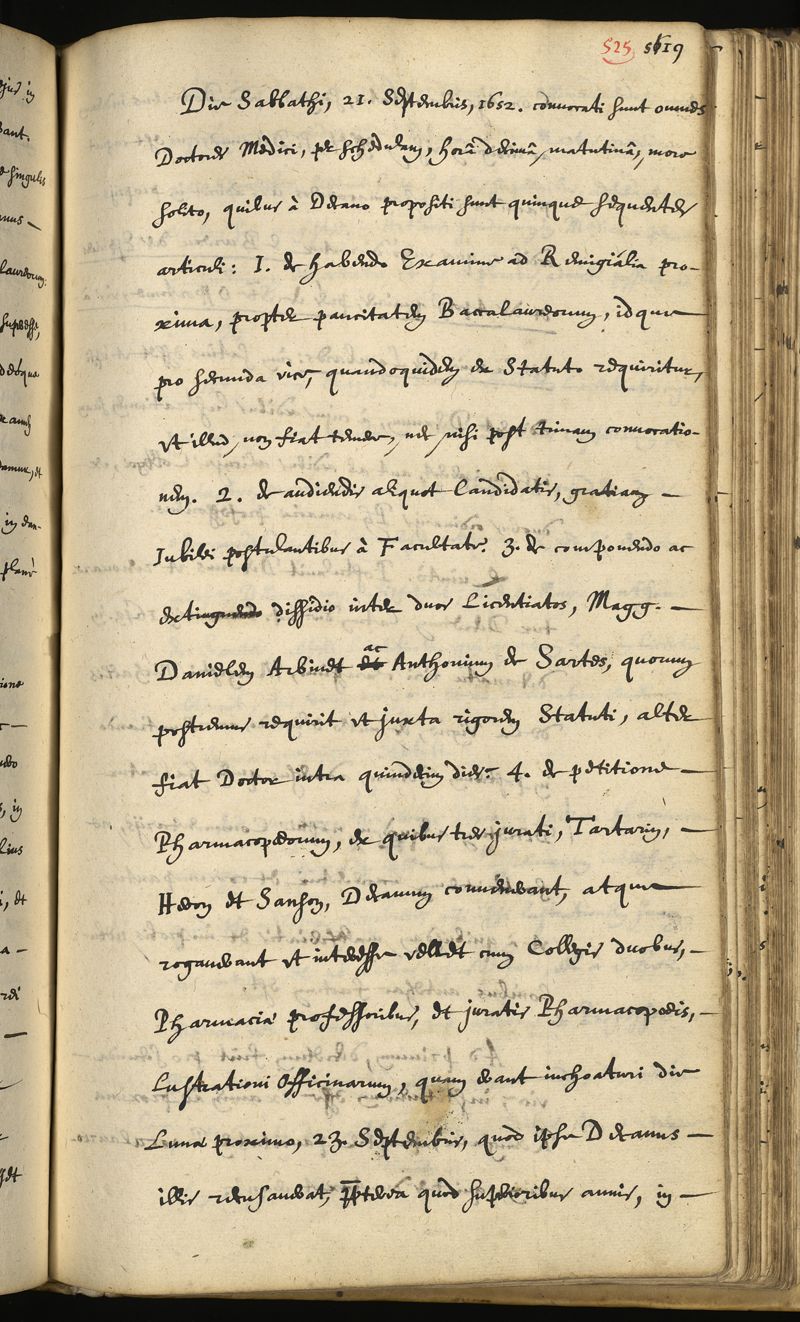 525 519
Die Sabbathi, 21. Septembris, 1652. convocati sunt omnes
Doctores Medici, per schedulam, horâ decimâ matutinâ, more
solito, quibus à Decano propositi sunt quinque sequentes
articuli: I. de habendo Examine ad Remigialia pro-
xima, propter paucitatem Baccalaureorum, idque
pro secunda vice, quandoquidem ex Statuto requiritur,
ut illud non fiat temere, nec nisi post trinam convocatio-
nem. 2. de audiendis aliquot Candidatis, gratiam
Iubilei postulantibus à Facultate. 3. de componendo ac
extinguendo dissidio inter duos Licentiatos, Magg.
Danielem Arbinet ac Anthonium de Sartes, quorum
postremus requirit ut juxta rigorem Statuti, alter
fiat Doctor intra quindecim dies. 4. de petitione
Pharmacopœorum, ex quibus tres jurati, Tartarin,
Héron et Sanson, Decanum convenerant, atque
rogaverant ut interesse vellet cum Collegis duobus,
Pharmaciæ professoribus, et juratis Pharmacopœis,
Lustrationi Officinarum, quam erant inchoaturi die
Lunæ proximo, 23. Septembris, quod ipse Decanus
illis recusaverat, ppterea quod superioribus annis, in